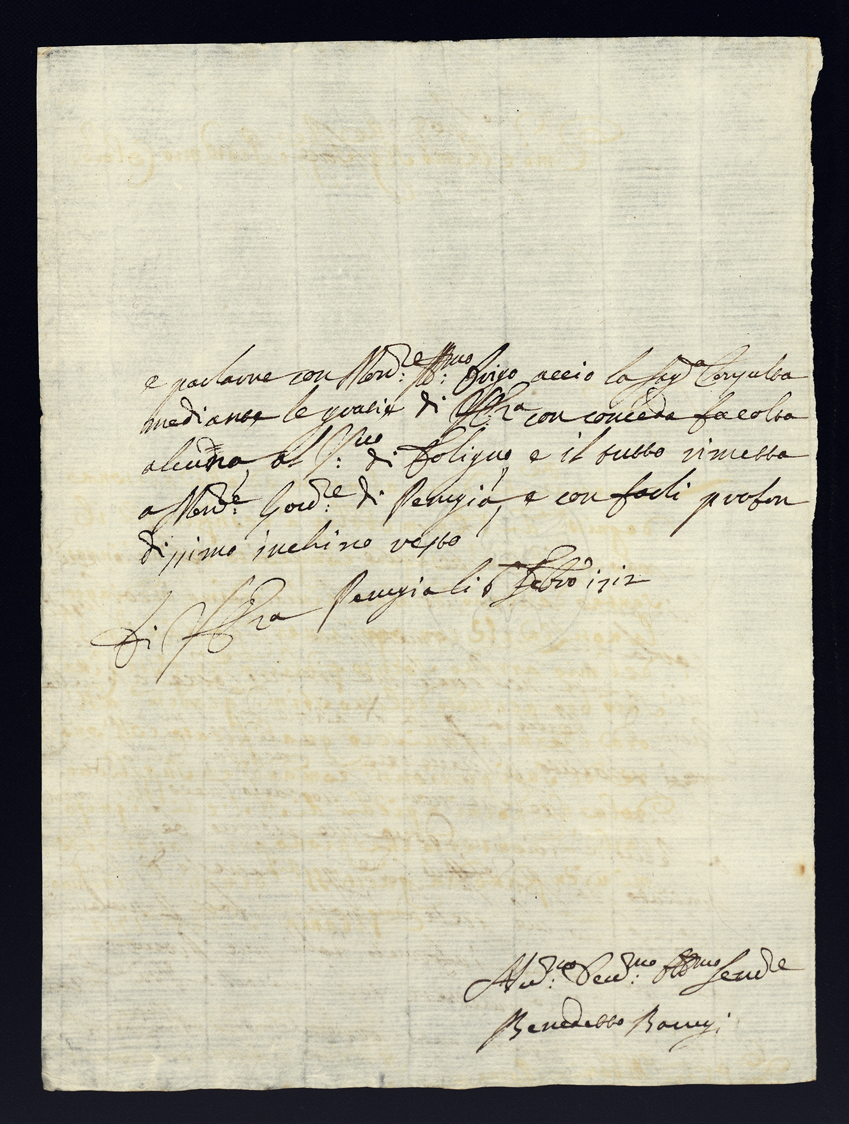 e parlarne con Mons:re Ill:mo Origo accio la Sag:a Consulta
mediante le grazie di V:S:Ill:ma non conceda facolta
alcuna al V:rio di Foligno, e il tutto rimetta
a Mons:re Gov:re di Perugia, e con farli profon
dissimo inchino resto
Di V:S:Ill:ma Perugia li 6 Febro 1712
Hu:mo Dev:mo Obb:mo Serv:re
Benedetto